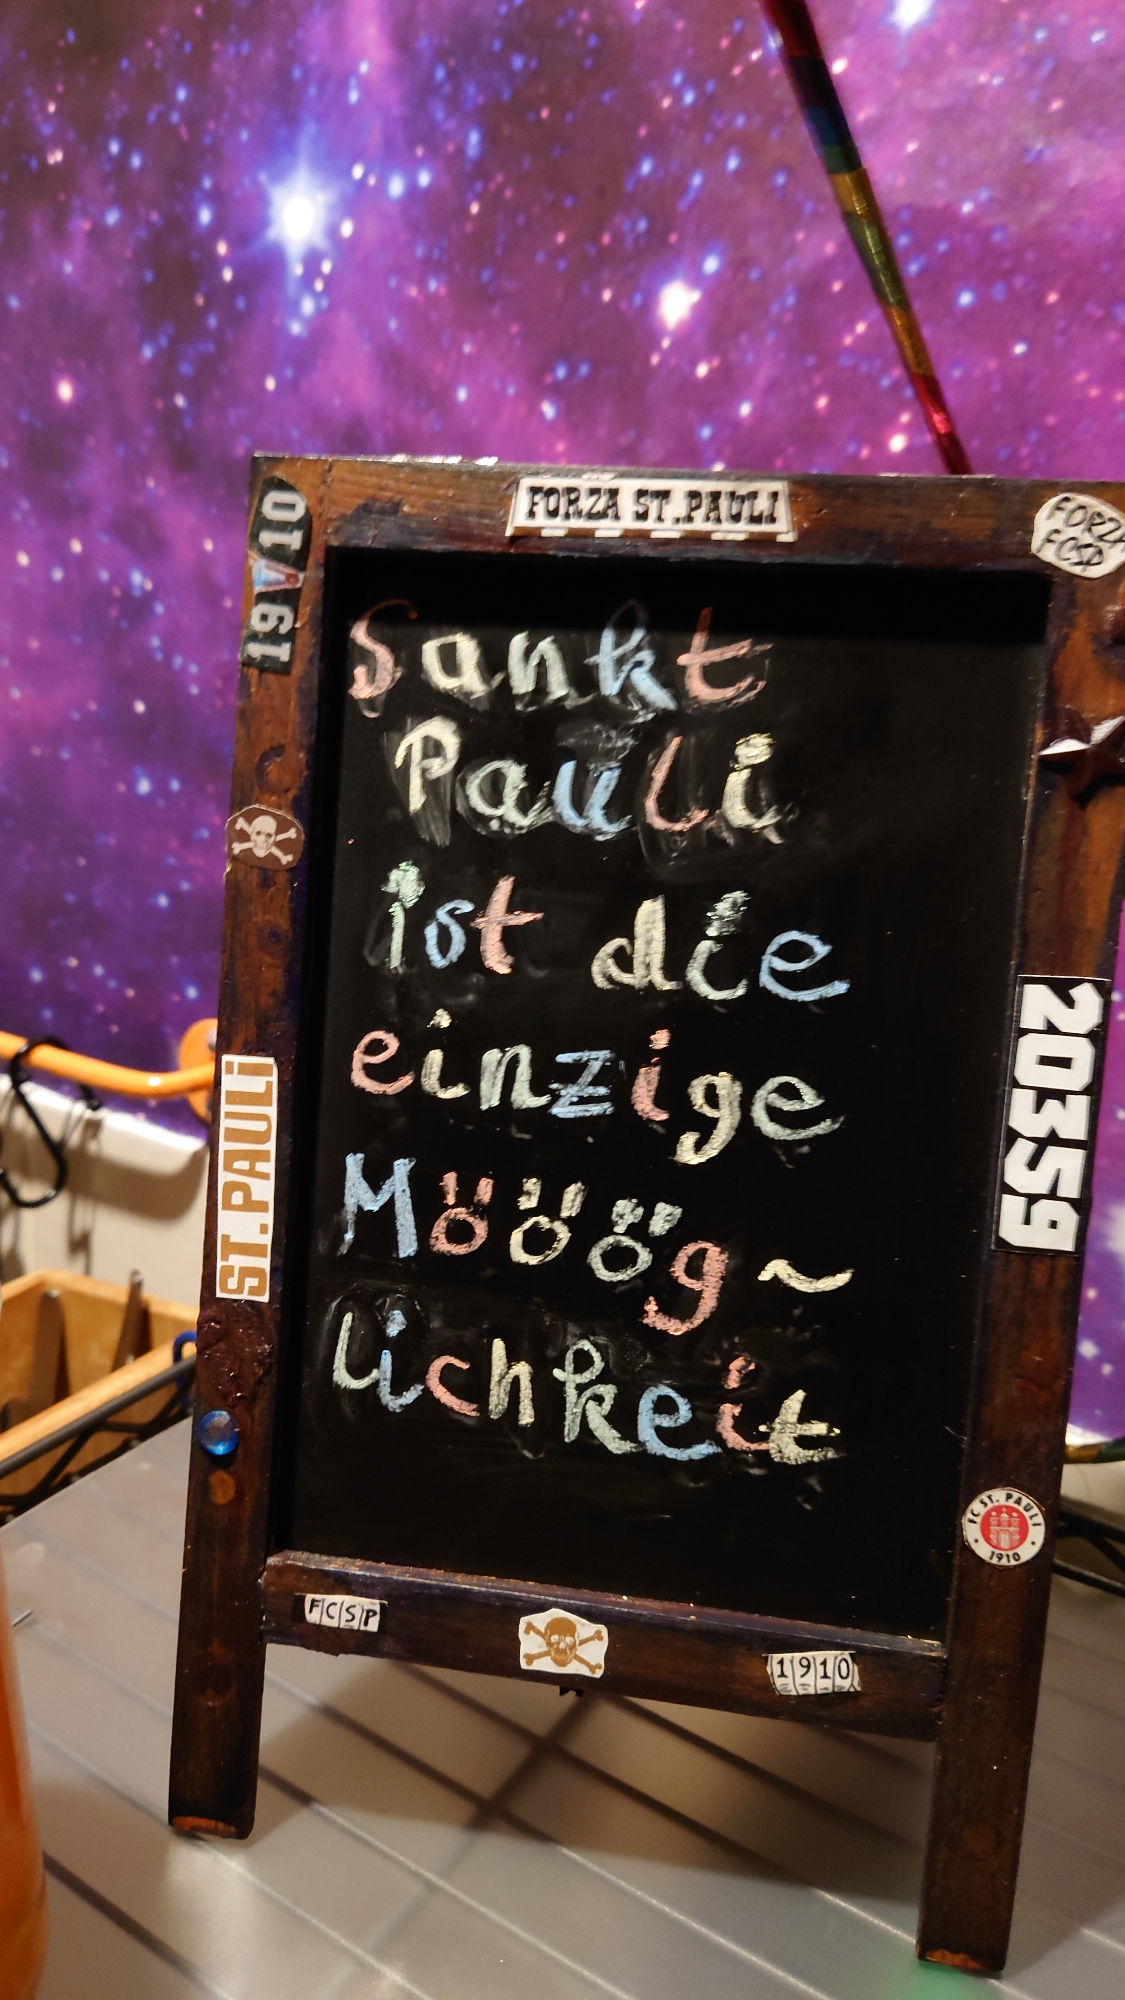 FORZA ST.PAULI
FORZA
FCSP
1910
Sankt
Pauli
ist die
einzige
Mööög~
lichkeit
ST.PAULi
20359
FC ST. PAULI
1910
FCSP
1910